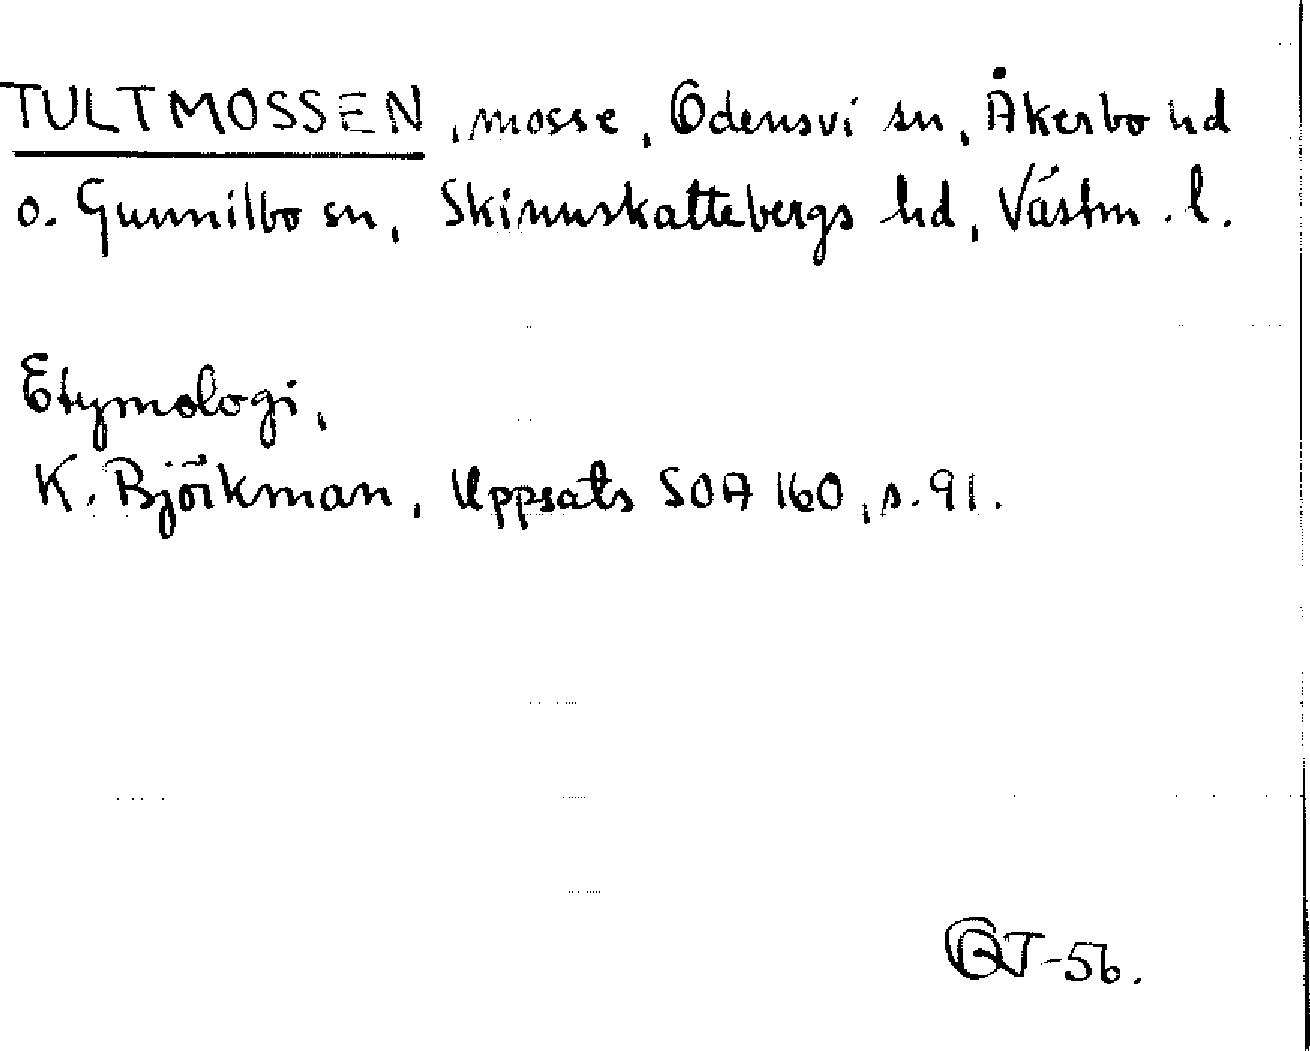 TULTMOSSEN, mosse, Odensvi sn, Åkerbo hd
o. Gunnilbo sn, Skinnskattebergs hd, Västm. l.
Etymologi,
K. Björkman, Uppsats SOA 160, s. 91.
-56.